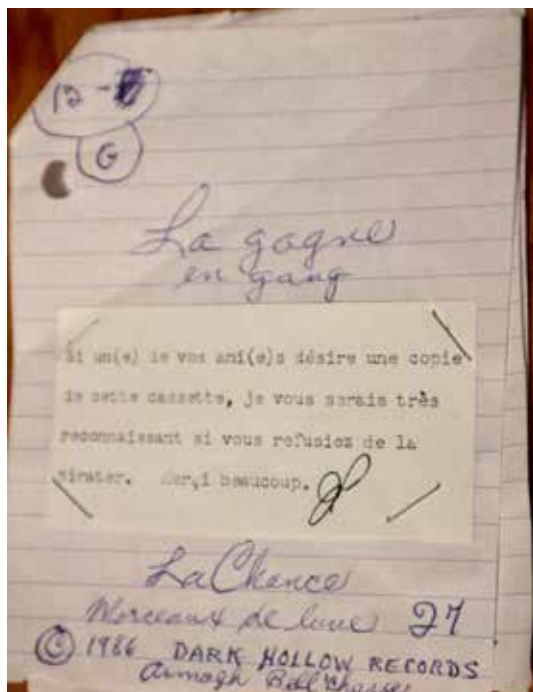 12 -
G
La gagne
en gang
Si un(e) de vos ami(e)s désire une copie
de cette cassette, je vous serais très
reconnaissant si vous refusiez de la
pirater. Merci beaucoup.
La Chance
Morceaux de lune 27
© 1986 DARK HOLLOW RECORDS
Armagh Bellechasse